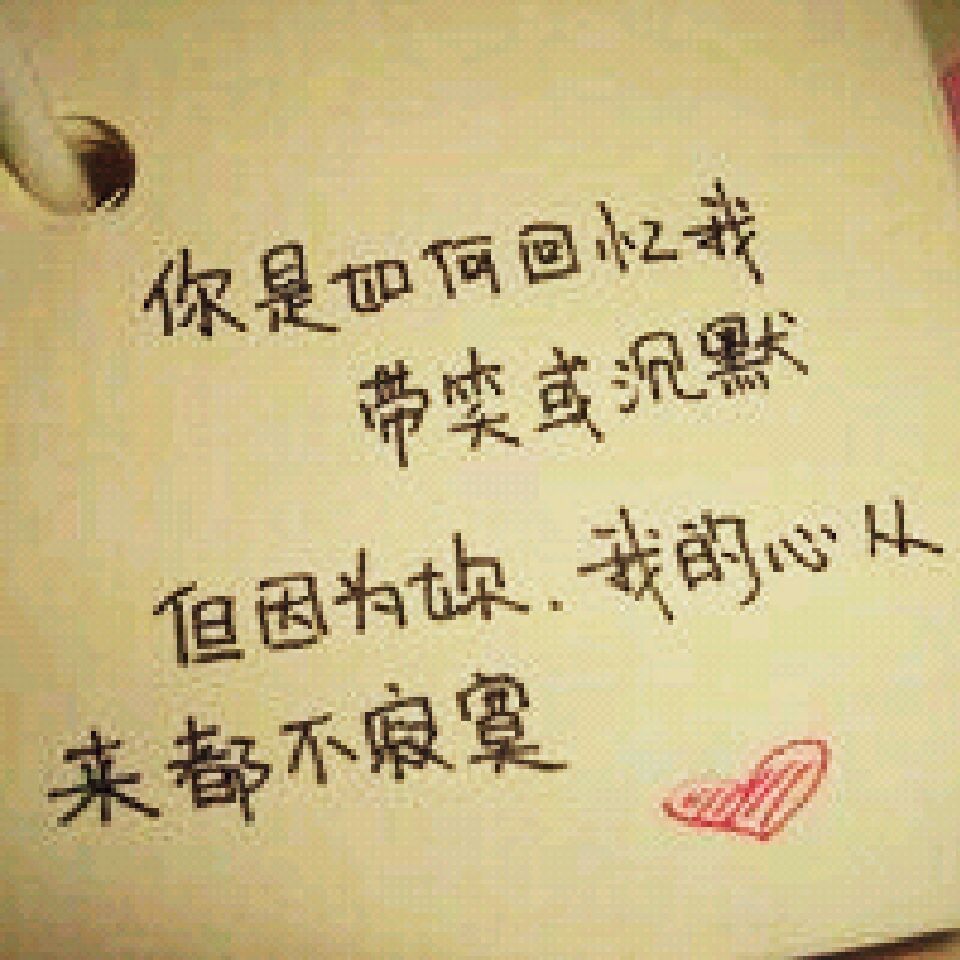 你是如何回忆我
带笑或沉默
但因为妳.我的心从
来都不寂寞